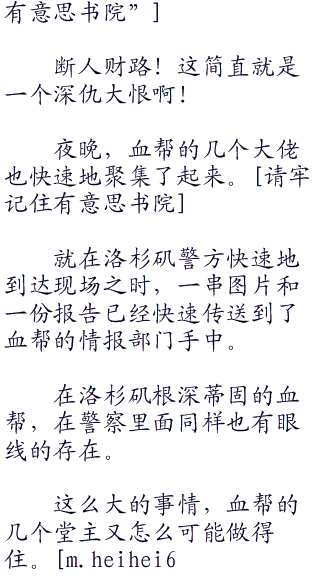 有意思书院”]
断人财路！这简直就是
一个深仇大恨啊！
夜晚，血帮的几个大佬
也快速地聚集了起来。[请牢
记住有意思书院]
就在洛杉矶警方快速地
到达现场之时，一串图片和
一份报告已经快速传送到了
血帮的情报部门手中。
在洛杉矶根深蒂固的血
帮，在警察里面同样也有眼
线的存在。
这么大的事情，血帮的
几个堂主又怎么可能做得
住。[m.heihei6